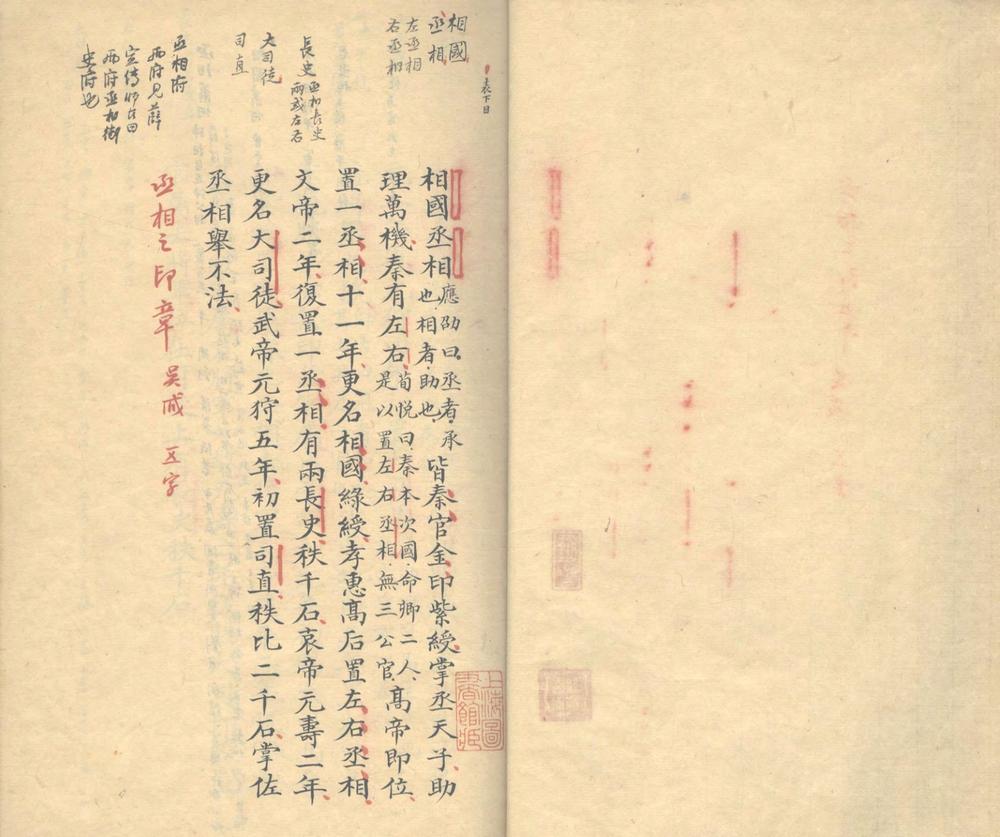 相國
丞相
左丞相
右丞相
表下目
長史 丞相長史
兩或左右
大司徒
司直
丞相府
西府見薛
宣傳師古曰
西府丞相御
史府也
相國丞相應劭曰丞者承
也相者助也皆秦官金印紫綬掌丞天子助
理萬機秦有左右荀悅曰秦本次國命卿二人
是以置左右丞相無三公官高帝即位
置一丞相十一年更名相國綠綬孝惠高后置左右丞相
文帝二年復置一丞相有兩長史秩千石哀帝元壽二年
更名大司徒武帝元狩五年初置司直秩比二千石掌佐
丞相舉不法
丞相之印章 吳 五字
上海圖
書館藏